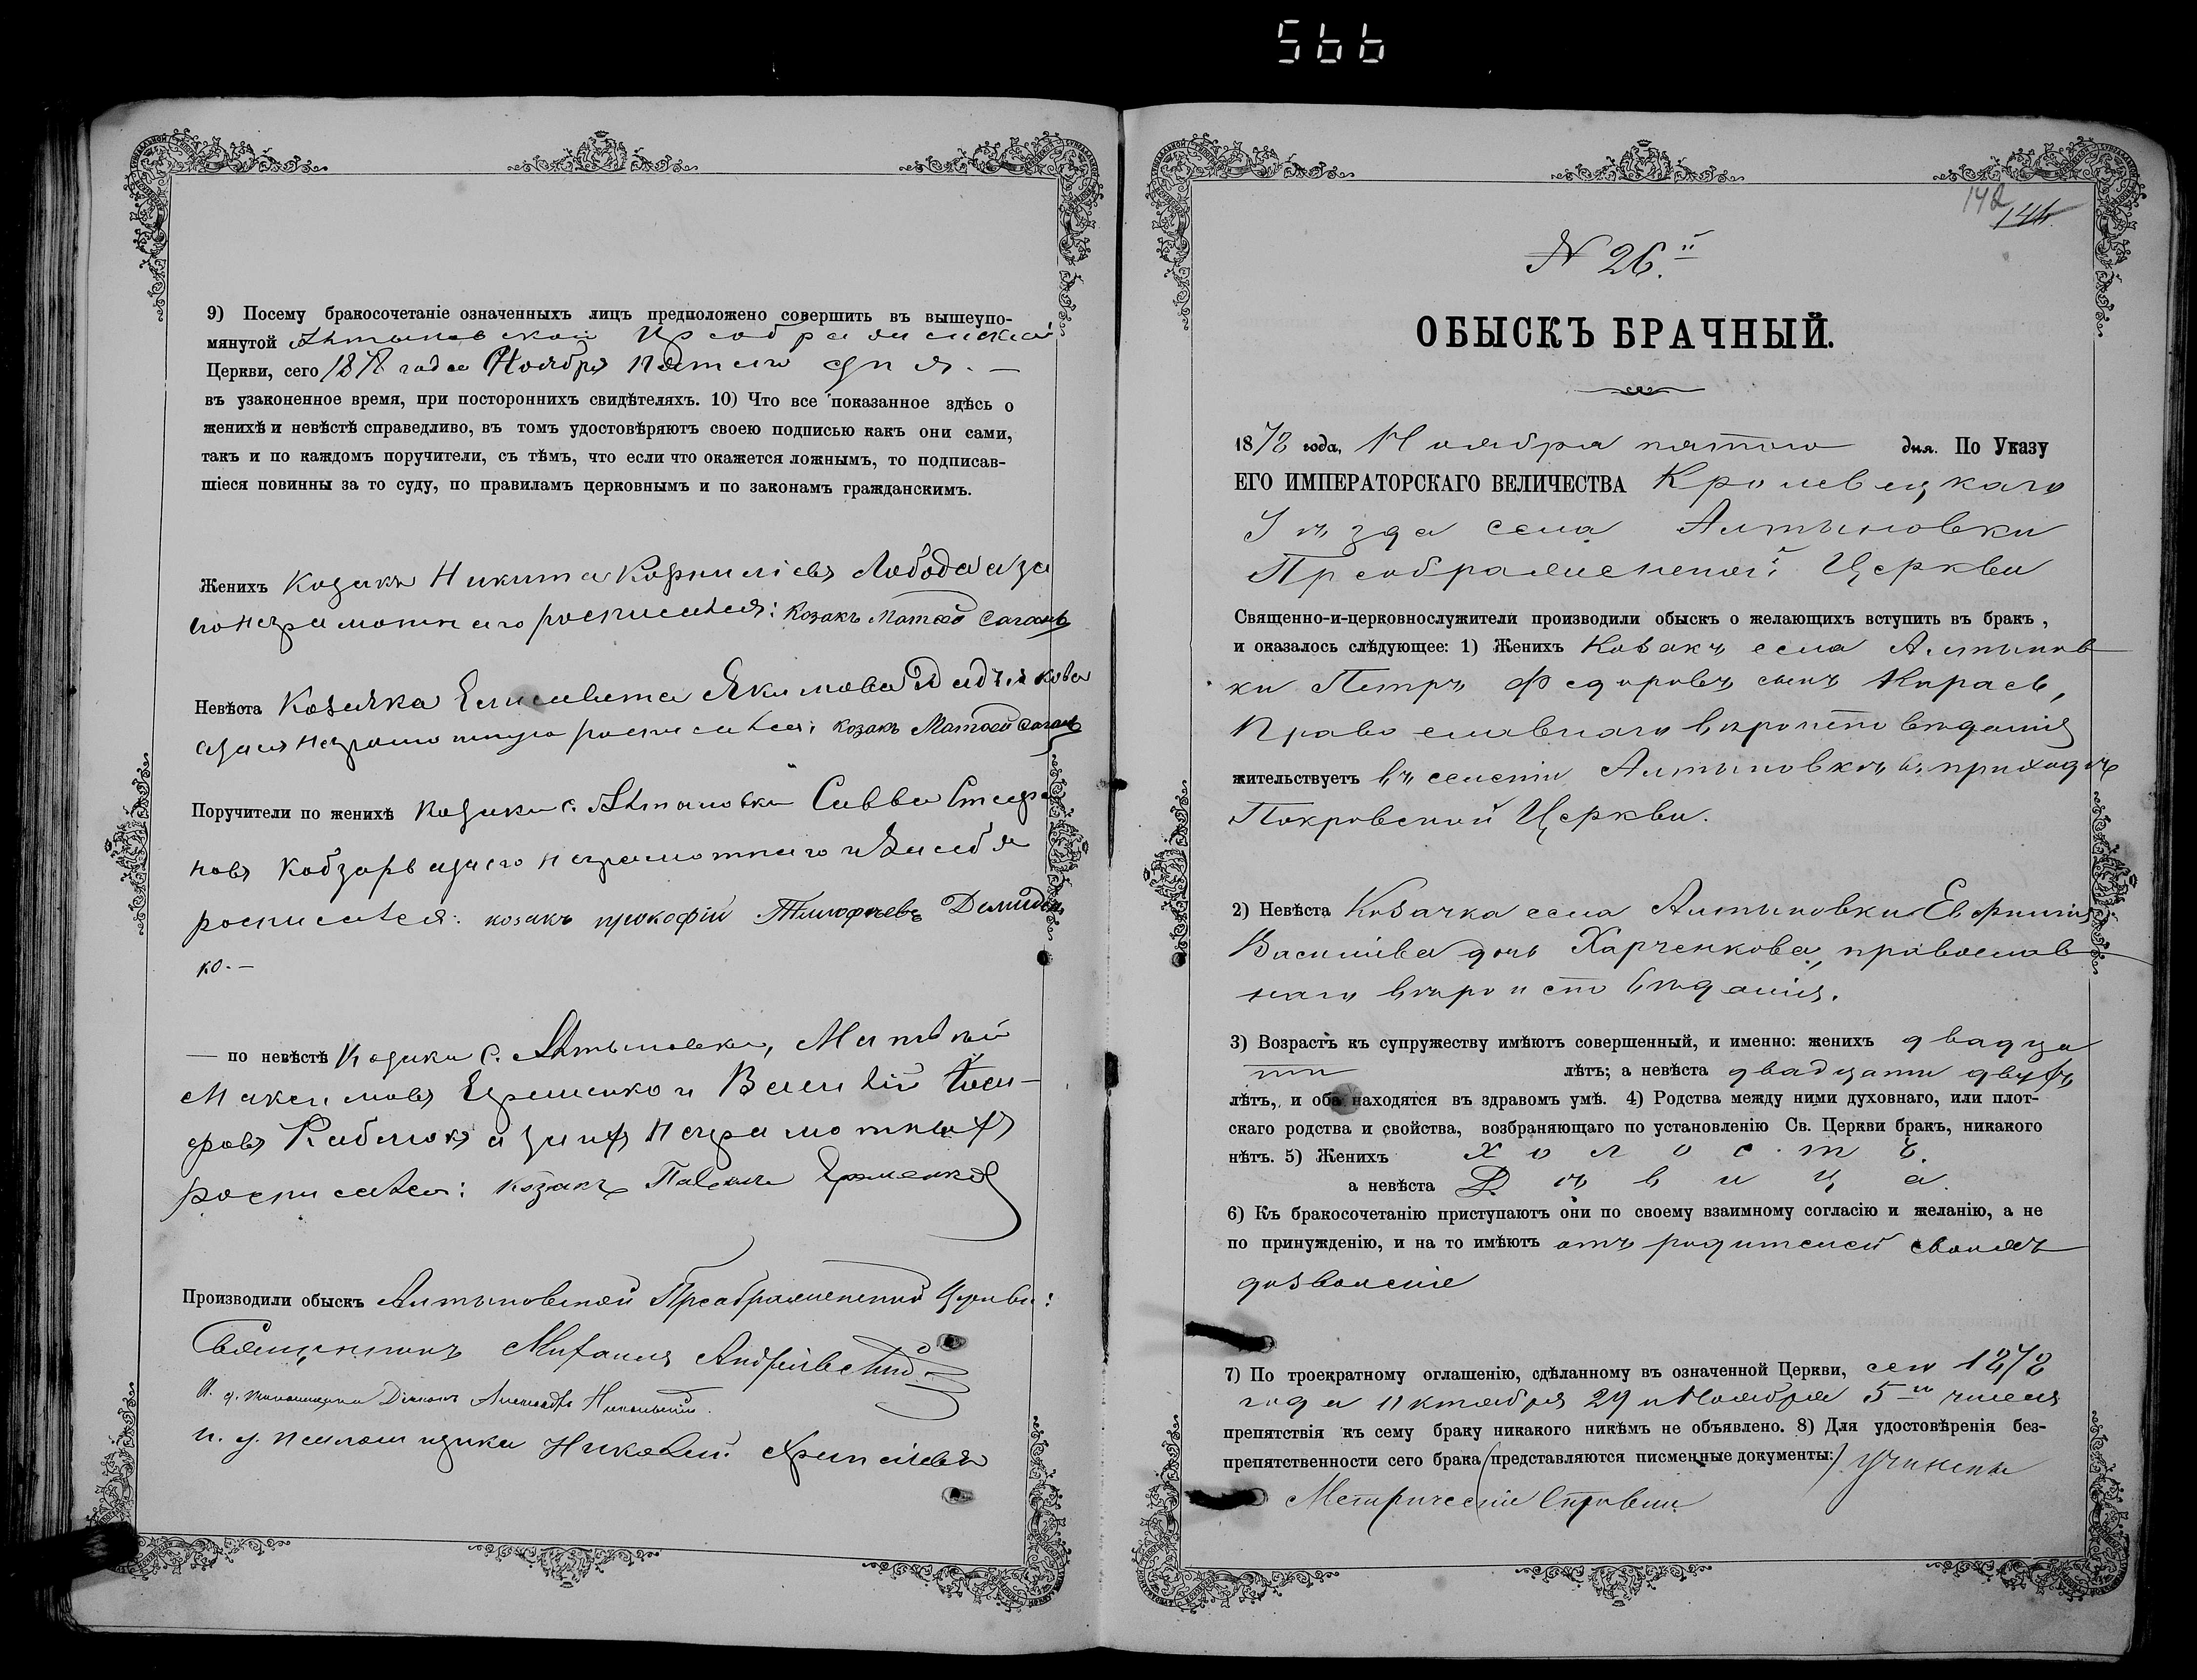 566
9) Посему бракосочетаніе означенныхъ лицъ предположено совершить въ вышеупо-
мянутой Алтыновской Преображенской
Церкви, сего 1878 года Ноября пятаго дня. —
въ узаконенное время, при постороннихъ свидѣтеляхъ. 10) Что все показанное здѣсь о
женихѣ и невѣстѣ справедливо, въ томъ удостовѣряютъ своею подписью какъ они сами,
такъ и по каждомъ поручители, съ тѣмъ, что если что окажется ложнымъ, то подписав-
шіеся повинны за то суду, по правиламъ церковнымъ и по законамъ гражданскимъ.
Женихъ Козакъ Никита Корниліевъ Лобода а за
его неграмотнаго росписался: Козакъ Матвей Сагань
Невѣста Козачка Елисавета Якимова
а за ея неграмотную росписался: козакъ Матвей Сагань
Поручители по женихѣ Козаки с. Алтыновки Савва Стефа
новъ Кобзарь а за его неграмотнаго и за себя
росписался: козакъ прокофій Тимофѣевъ Демиден
ко. —
— по невѣстѣ Козаки с. Алтыновки, Матвѣй
Максимовъ Ерошенко и Василій
Кабанюкъ а за ихъ неграмотныхъ
росписался: козакъ Павелъ Ярменко
Производили обыскъ Алтыновской Преображенской Церкви:
Священникъ Михаилъ
и. д. псаломщика Діаконъ Александръ
и. д. псаломщика Николай
142
144
N 26.й
ОБЫСКЪ БРАЧНЫЙ.
1878 года, Ноября пятого дня. По Указу
ЕГО ИМПЕРАТОРСКАГО ВЕЛИЧЕСТВА Кролевецкаго
Уѣзда села Алтыновки
Преображенской Церкви
Священно-и-церковнослужители производили обыскъ о желающихъ вступить въ бракъ ,
и оказалось слѣдующее: 1) Женихъ Козакъ села Алтынов
ки Петръ Федоровъ сынъ Карась,
Православнаго вѣроисповѣданія
жительствуетъ въ селеніи Алтыновкѣ въ приходѣ
Покровской Церкви.
2) Невѣста Козачка села Алтыновки Евфимія
Василіева дочь Харченкова, православ
наго вѣроисповѣданія.
3) Возрастъ къ супружеству имѣютъ совершенный, и именно: женихъ двадца
ти лѣтъ; а невѣста двадцати двухъ
лѣтъ, и оба находятся въ здравомъ умѣ. 4) Родства между ними духовнаго, или плот-
скаго родства и свойства, возбраняющаго по установленію Св. Церкви бракъ, никакого
нѣтъ. 5) Женихъ холостъ.
а невѣста Дѣвица.
6) Къ бракосочетанію приступаютъ они по своему взаимному согласію и желанію, а не
по принужденію, и на то имѣютъ отъ родителей своихъ
дозволеніе
7) По троекратному оглашенію, сдѣланному въ означенной Церкви, сего 1878
года октября 29 и Ноября 5го числа
препятствія къ сему браку никакого никѣмъ не объявлено. 8) Для удостовѣренія без-
препятственности сего брака (представляются писменные документы:) учинены
Метрическіе Справки